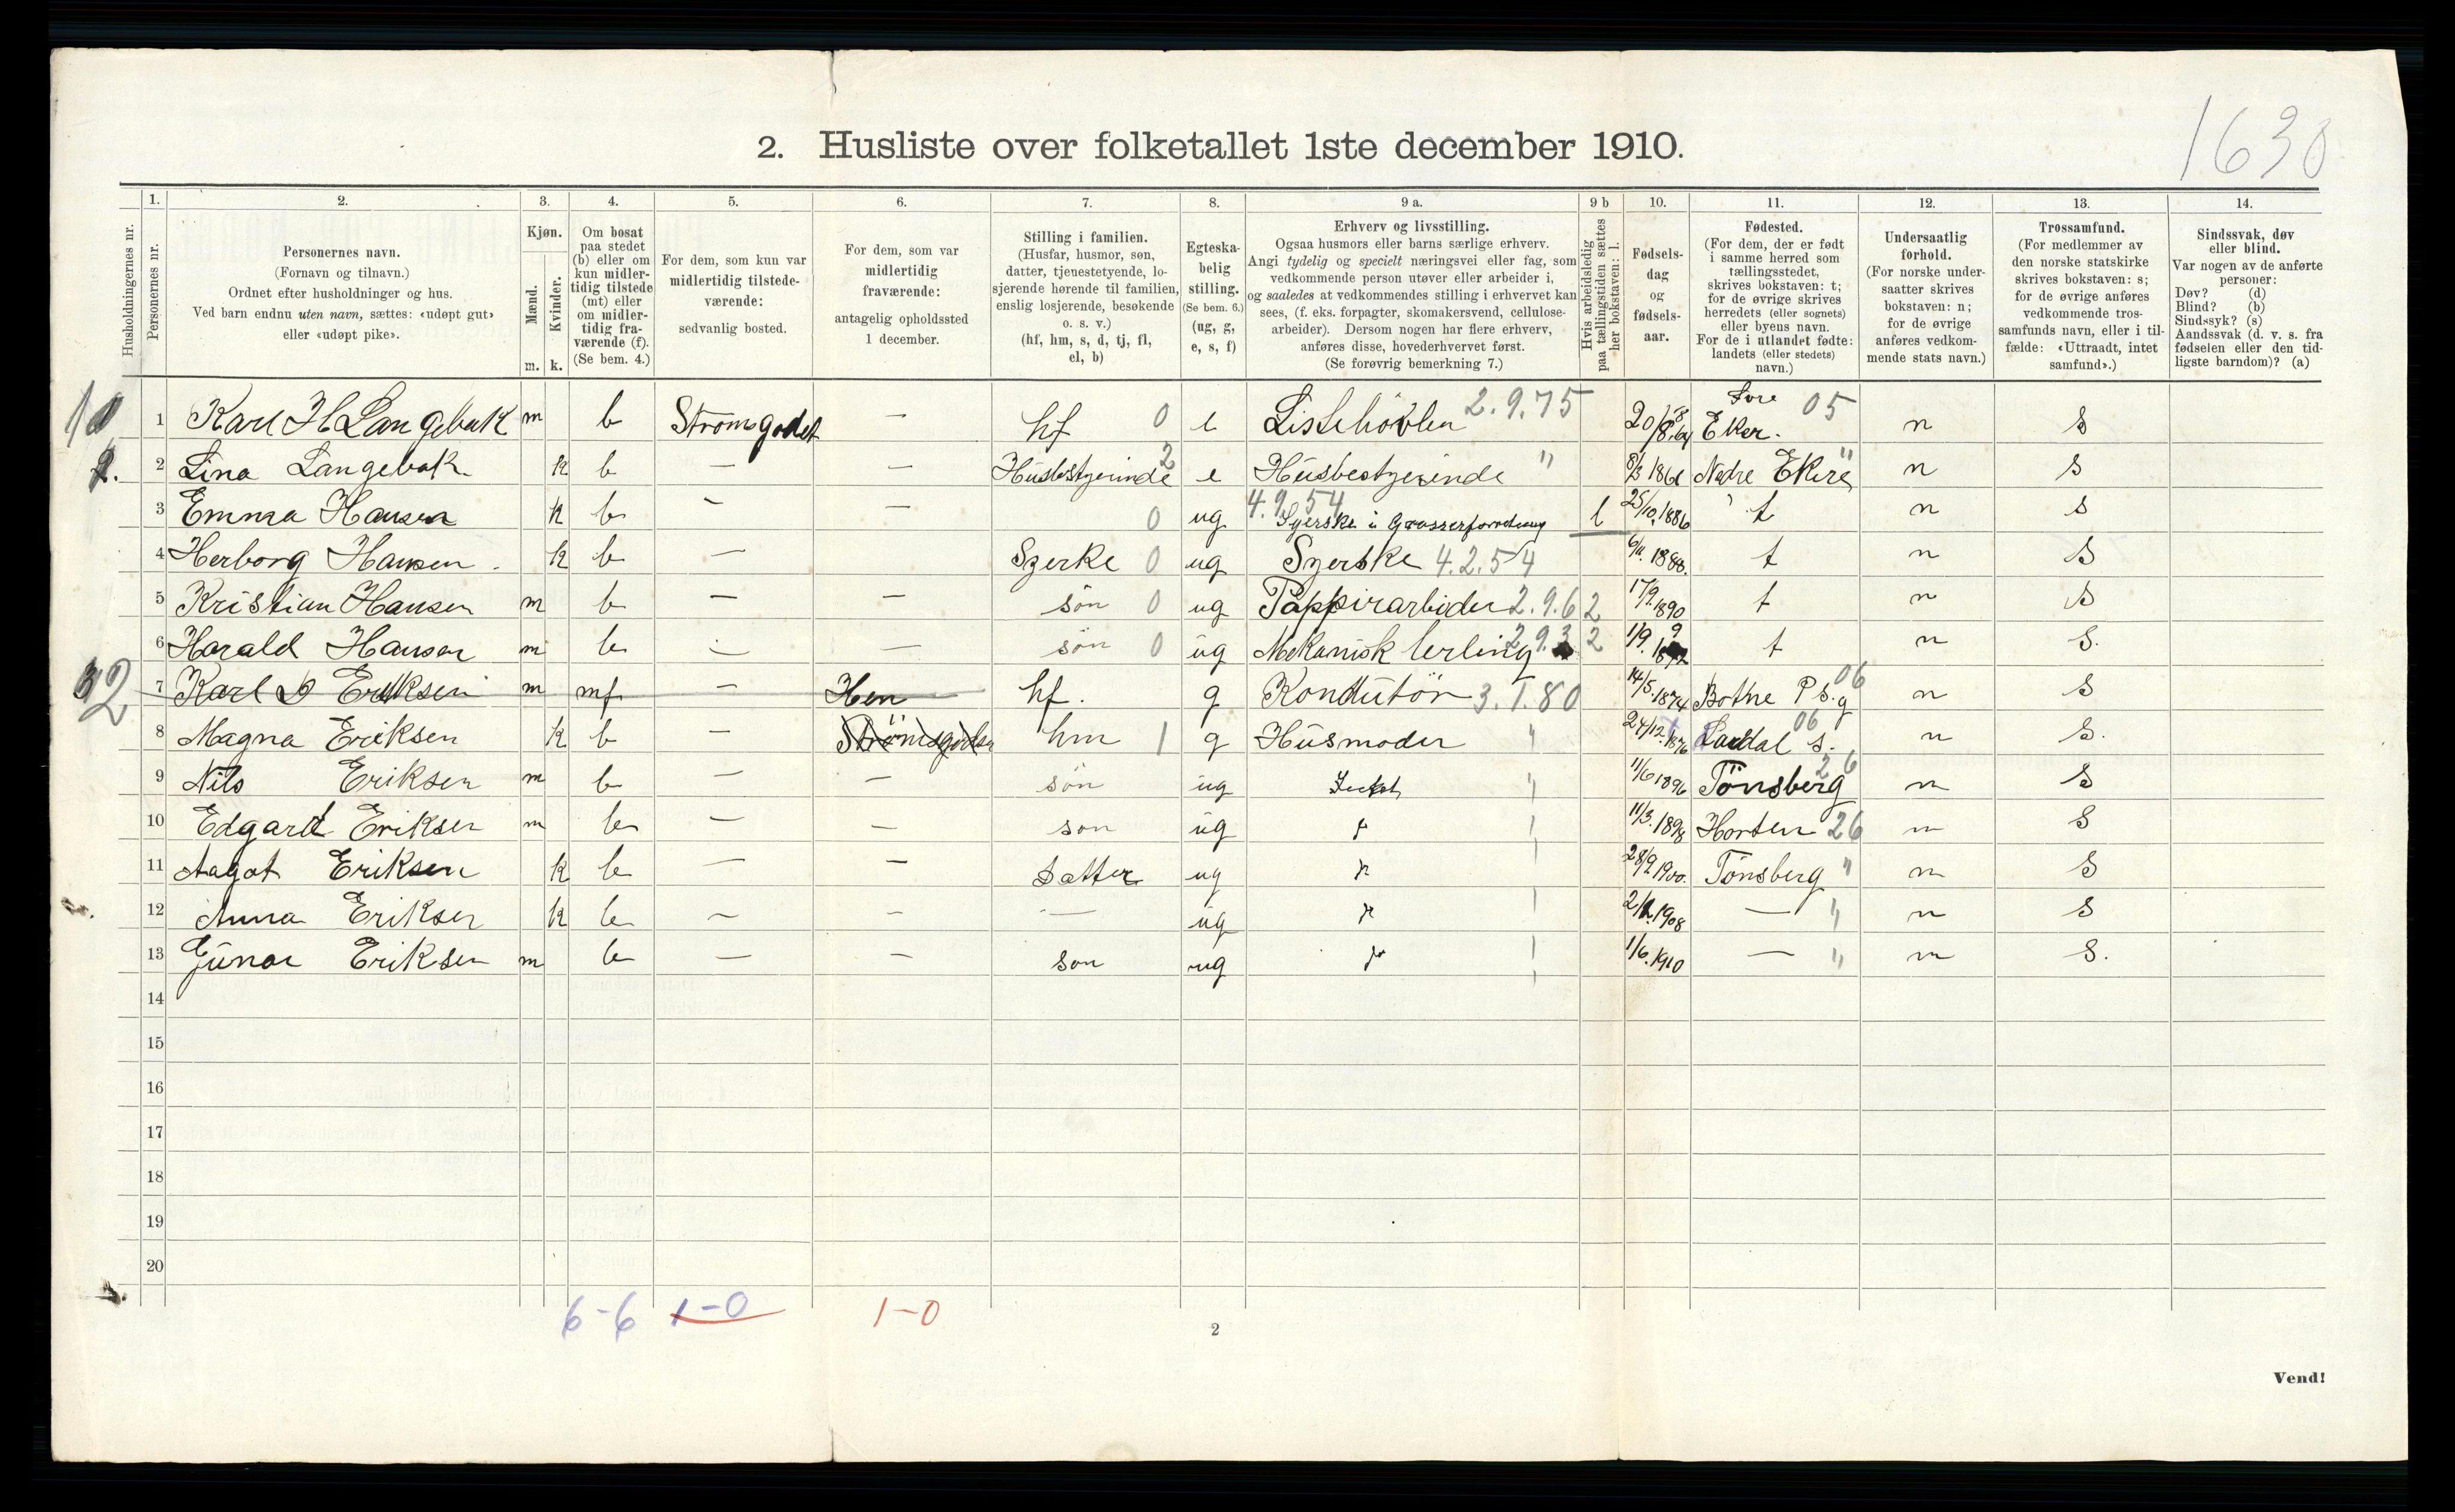 1630
2. Husliste over folketallet 1ste december 1910.
1. 2. 3. 4. 5. 6. 7. 8. 9 a. 9 b 10. 11. 12. 13. 14.
Husholdningernes nr.
Personernes nr.
Personernes navn.
(Fornavn og tilnavn.)
Ordnet efter husholdninger og hus.
Ved barn endnu uten navn, sættes: «udøpt gut»
eller «udøpt pike».
Kjøn.
Mænd.
Kvinder.
m. k.
Om bosat
paa stedet
(b) eller om
kun midler-
tidig tilstede
(mt) eller
om midler-
tidig fra-
værende (f).
(Se bem. 4.)
For dem, som kun var
midlertidig tilstede-
værende:
sedvanlig bosted.
For dem, som var
midlertidig
fraværende:
antagelig opholdssted
1 december.
Stilling i familien.
(Husfar, husmor, søn,
datter, tjenestetyende, lo-
sjerende hørende til familien,
enslig losjerende, besøkende
o. s. v.)
(hf, hm, s, d, tj, fl,
el, b)
Egteska-
belig
stilling.
(Se bem. 6.)
(ug, g,
e, s, f)
Erhverv og livsstilling.
Ogsaa husmors eller barns særlige erhverv.
Angi tydelig og specielt næringsvei eller fag, som
vedkommende person utøver eller arbeider i,
og saaledes at vedkommendes stilling i erhvervet kan
sees, (f. eks. forpagter, skomakersvend, cellulose-
arbeider). Dersom nogen har flere erhverv,
anføres disse, hovederhvervet først.
(Se forøvrig bemerkning 7.)
Hvis arbeidsledig
paa tællingstiden sættes
her bokstaven: l.
Fødsels-
dag
og
fødsels-
aar.
Fødested.
(For dem, der er født
i samme herred som
tællingsstedet,
skrives bokstaven: t;
for de øvrige skrives
herredets (eller sognets)
eller byens navn.
For de i utlandet fødte:
landets (eller stedets)
navn.)
Undersaatlig
forhold.
(For norske under-
saatter skrives
bokstaven: n;
for de øvrige
anføres vedkom-
mende stats navn.)
Trossamfund.
(For medlemmer av
den norske statskirke
skrives bokstaven: s;
for de øvrige anføres
vedkommende tros-
samfunds navn, eller i til-
fælde: «Uttraadt, intet
samfund».)
Sindssvak, døv
eller blind.
Var nogen av de anførte
personer:
Døv? (d)
Blind? (b)
Sindssyk? (s)
Aandssvak (d. v. s. fra
fødselen eller den tid-
ligste barndom)? (a)
1 Karl H Langebak m b Stromsgodet — hf 0 e Listehövlen 2.9.75 20/8 64 Övre Eker. 05 n s
2. 2 Lina Langebak k b — — Husbestyerinde 2 e Husbestyerinde " 8/3 1861 Nedre Ekre " n s
3 Emma Hansen k b — — 0 ug 4.9.54 Syerske i l 25/10 1886 t n s
4 Herborg Hansen k b — Syerke 0 ug Syerske 4.2.54 6/11 1888. t n s
5 Kristian Hansen m b — — sön 0 ug Pappirarbider 2.9.62 17/9 1890 t n s
6 Harald Hansen m b — — sön 0 ug Mekanisk lerling 2.9.3 2 1/9. t n s.
2 7 Karl Eriksen m mf — Hen hf. g Konduktör 3.1.80 14/5. 1874 Botne P S.g 06 n s
8 Magna Eriksen k b — Strömsgodset hm 1 g Husmoder " 24/12 1876 Lardal s. 06 n s.
9 Nils Eriksen m b — — sön ug " 11/6 1896 Tönsberg 26 n s
10 Edgard Eriksen m b — — son ug 11/3. 1898 Horten 26 n s
11 Aagot Eriksen k b — — Datter ug 28/9 1900. Tönsberg " n s
12 Anna Eriksen k b — — — ug 1908 — " n s
13 Gunar Eriksen m b — — son ug 1/6. 1910 — " n s.
14
15
16
17
18
19
20
6-6 1-0 1-0
2
Vend!